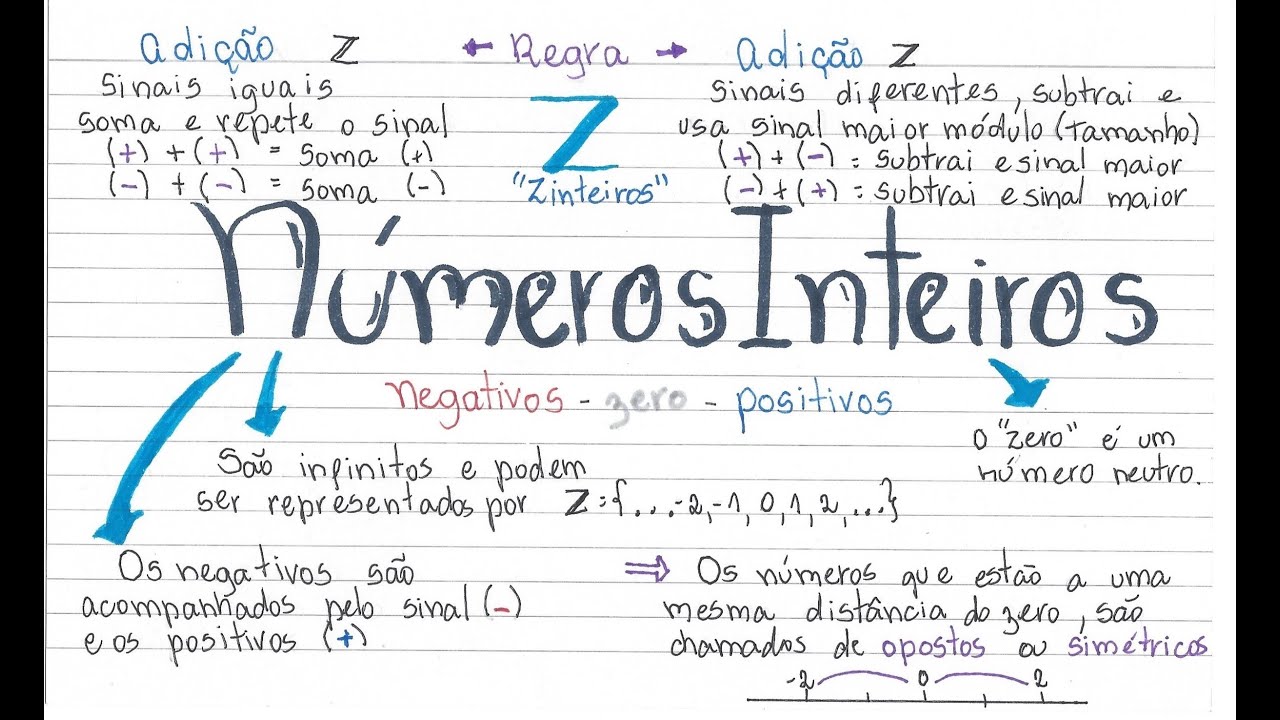 Adição Z
Sinais iguais
soma e repete o sinal
(+) + (+) = soma (+)
(-) + (-) = soma (-)
← Regra →
Z
"Zinteiros"
Adição Z
Sinais diferentes, subtrai e
usa sinal maior módulo (tamanho)
(+) + (-) = subtrai e sinal maior
(-) + (+) = subtrai e sinal maior
Números Inteiros
negativos - zero - positivos
São infinitos e podem
ser representados por Z = {...-2,-1, 0, 1, 2, ...}
O "zero" é um
número neutro.
Os negativos são
acompanhados pelo sinal (-)
e os positivos (+)
⇒ Os números que estão a uma
mesma distância do zero, são
chamados de opostos ou simétricos
-2 0 2